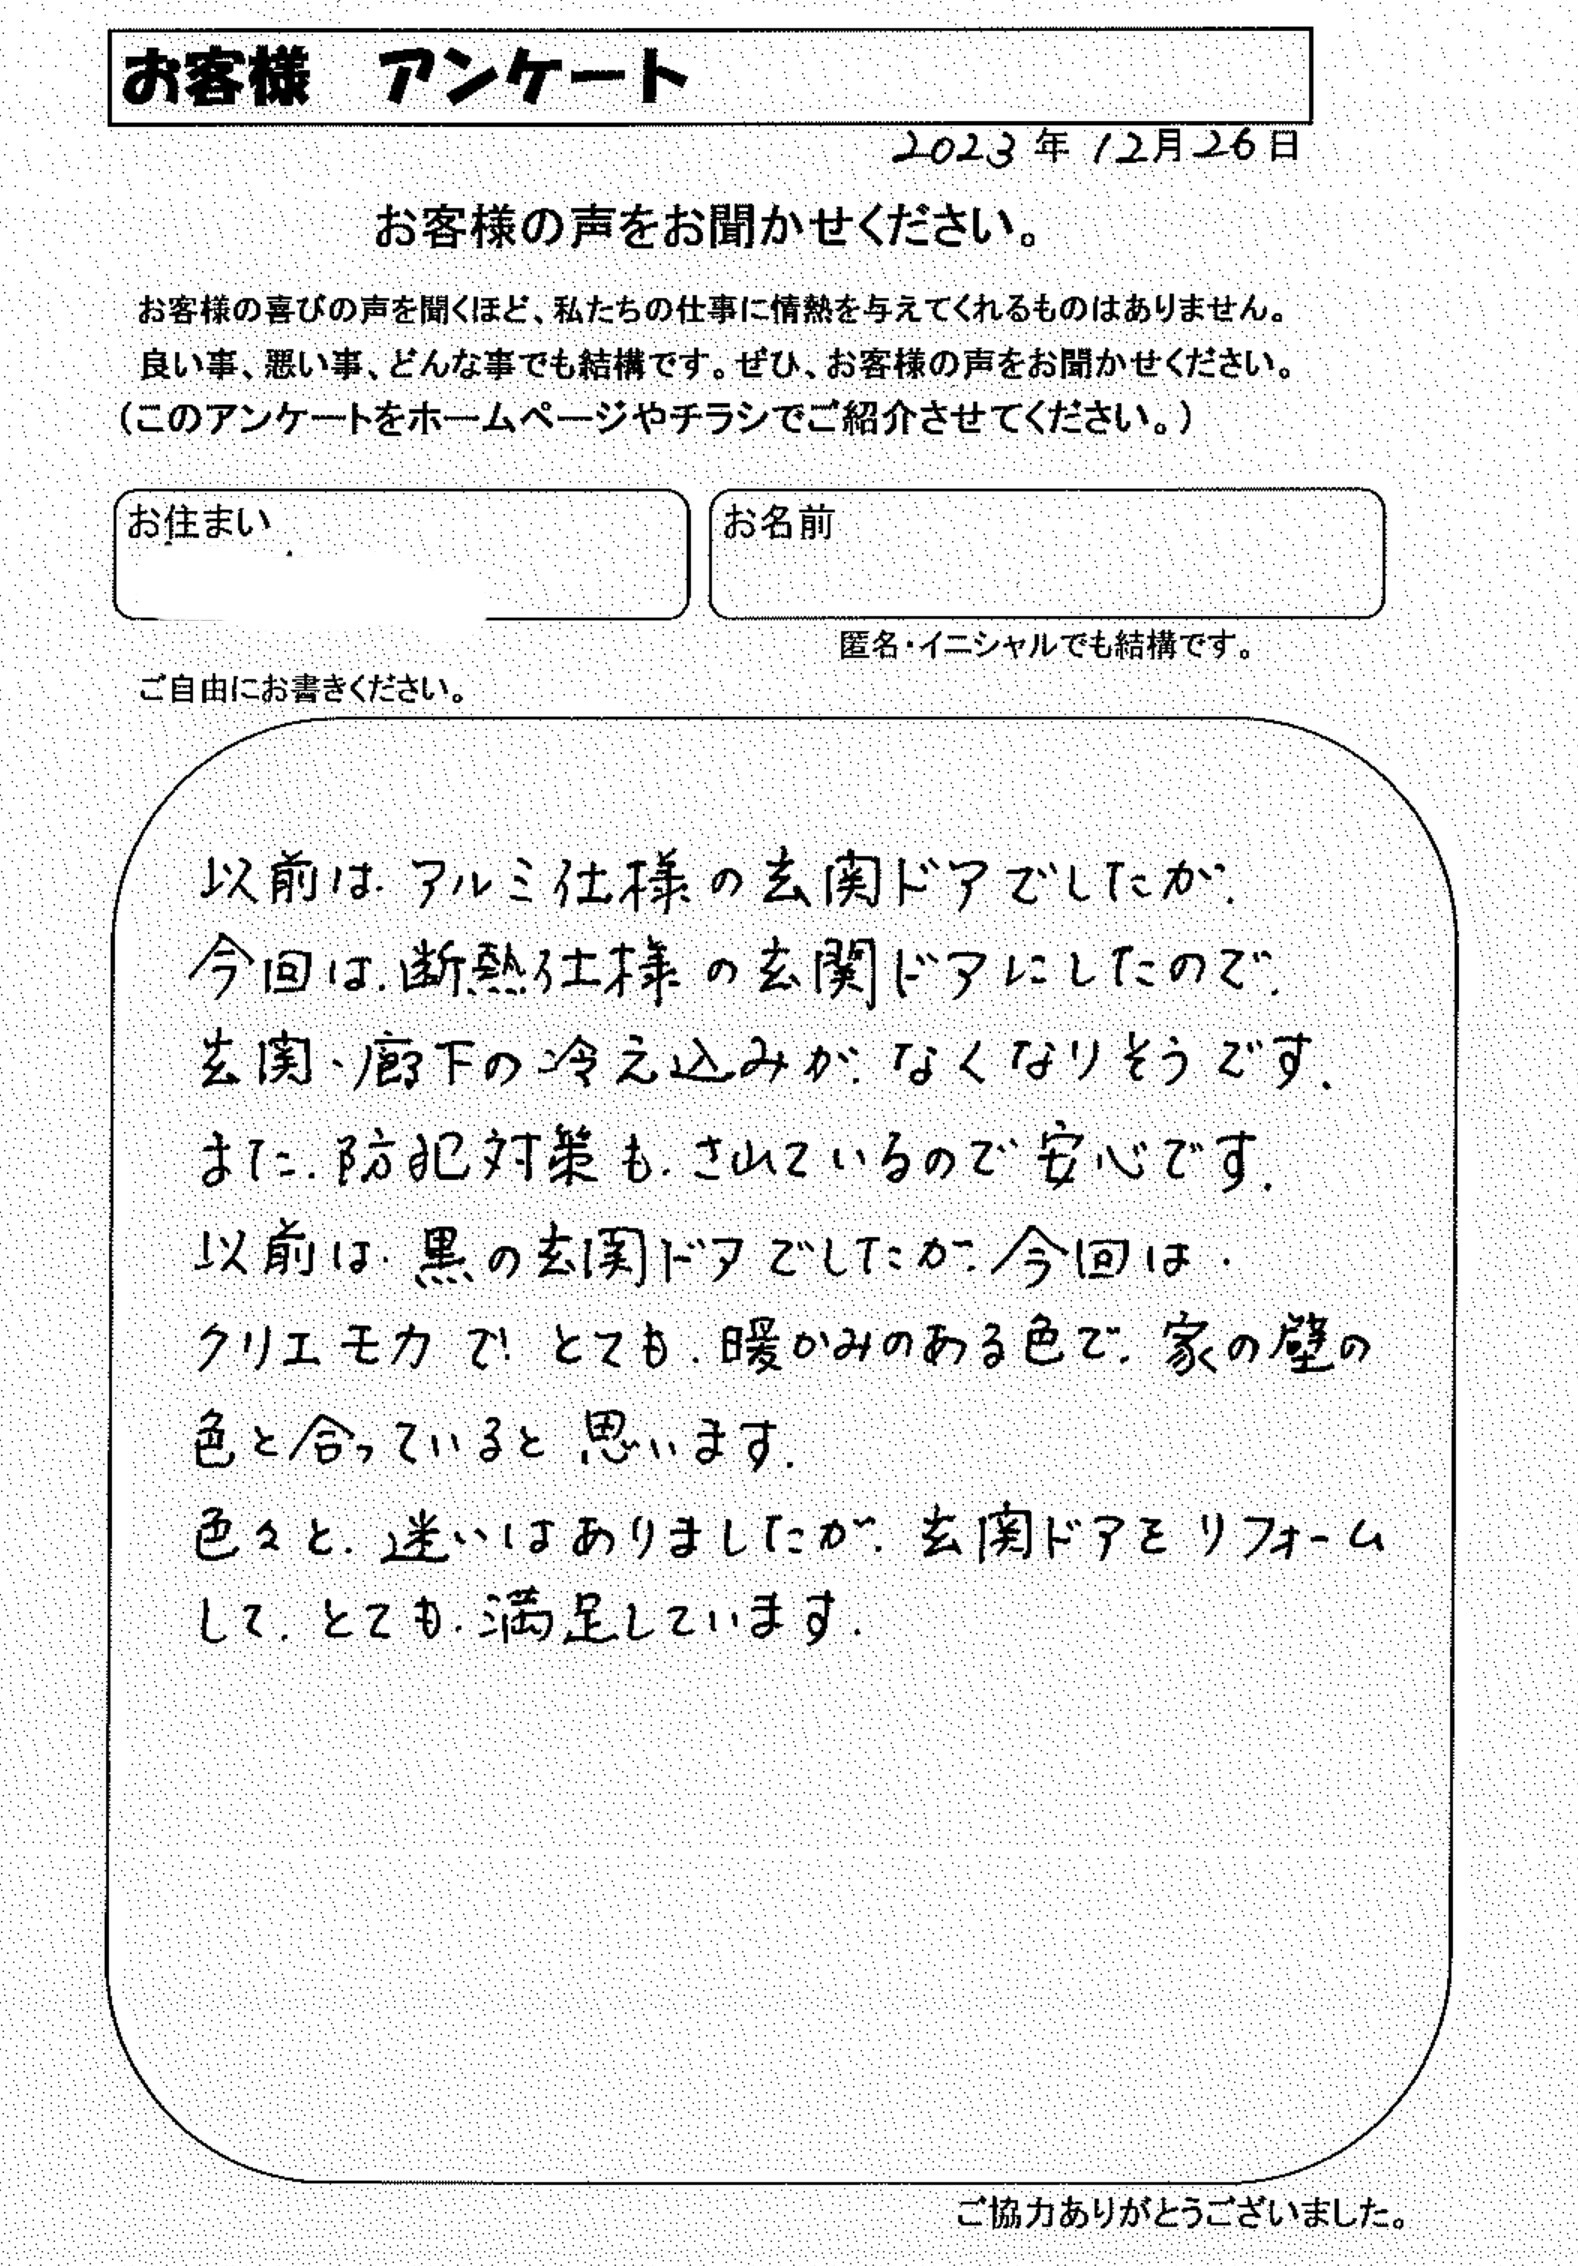 お客様　アンケート
2023年12月26日
お客様の声をお聞かせください。
お客様の喜びの声を聞くほど、私たちの仕事に情熱を与えてくれるものはありません。
良い事、悪い事、どんな事でも結構です。ぜひ、お客様の声をお聞かせください。
（このアンケートをホームページやチラシでご紹介させてください。）
お住まい
お名前
匿名・イニシャルでも結構です。
ご自由にお書きください。
以前は、アルミ仕様の玄関ドアでしたが、
今回は、断熱仕様の玄関ドアにしたので、
玄関、廊下の冷え込みが、なくなりそうです。
また、防犯対策も、されているので安心です。
以前は、黒の玄関ドアでしたが、今回は、
クリエモカで、とても、暖かみのある色で、家の壁の
色と合っていると思います。
色々と、迷いはありましたが、玄関ドアをリフォーム
して、とても、満足しています。
ご協力ありがとうございました。